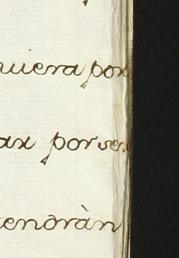 uiera por
ax por ser
tendràn